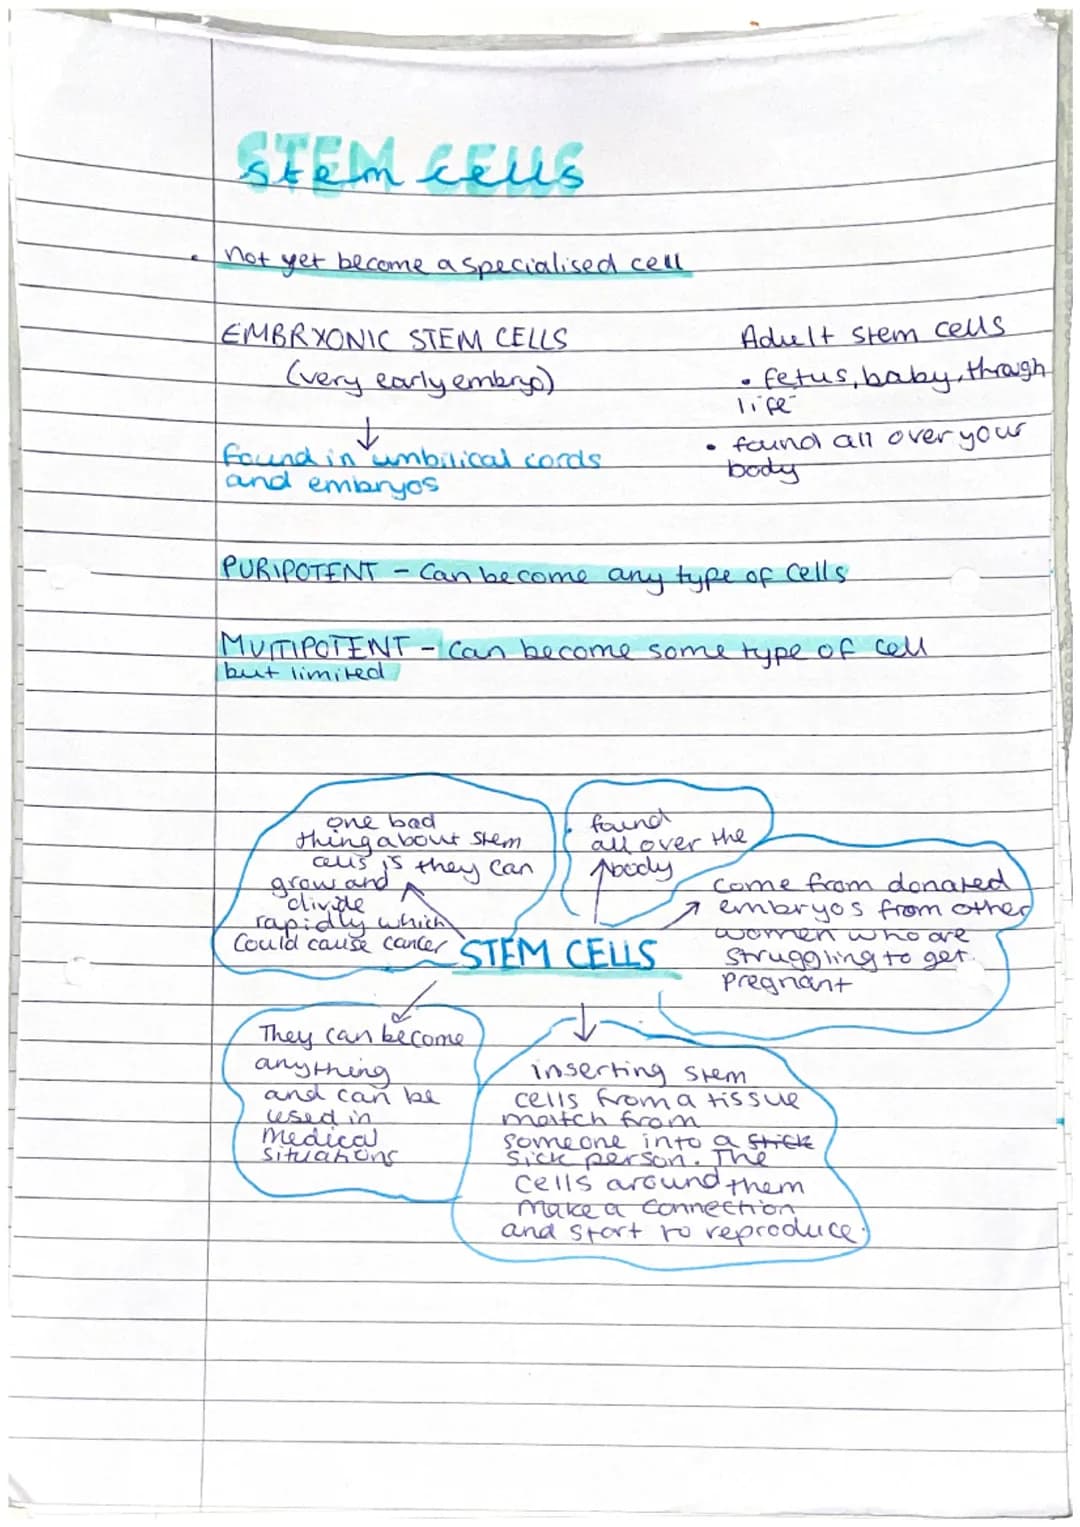 STEM CELLS
stem cells
• not yet become a specialised cell
EMBRYONIC STEM CELLS
(very early embryo)
↓
found in umbilical cords
and embryos
Adult stem cells
• fetus, baby, through
life
• found all over your
body
PURIPOTENT - Can become any type of cells
MUTIPOTENT - Can become some type of cell
but limited
one bad
thing about stem
cells is they can
grow and
divide
rapidly which
Could cause cancer
• found
all over the
body
come from donated
embryos from other
women who are
struggling to get
pregnant
STEM CELLS
They can become
anything
and can be
used in
Medical
situations
inserting stem
cells from a tissue
match from
someone into a stick
sick person. The
cells around them
make a connection
and start to reproduce.